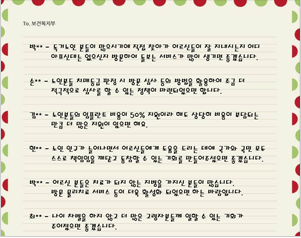 To. 보건복지부
박** - 독거노인 분들이 많으시기에 직접 찾아가 어르신들이 잘 지내시는지 어디
아프신데는 없으신지 방문하여 돌보는 서비스가 많이 생기면 좋겠습니다.
손** - 노인분들 치매등급 판정 시 방문 심사 등의 방법을 활용하여 조금 더
적극적으로 심사를 할 수 있는 정책이 마련되었으면 합니다.
김** - 노인분들의 임플란트 비용이 50% 지원이라 해도 상당히 비용이 부담되는
만큼 더 많은 지원이 있으면 해요.
한** - 노인 인구가 늘어나면서 어르신들에게 도움을 드리는 데에 국가와 국민 모두
스스로 책임감을 깨닫고 동참할 수 있는 기회를 만들어주셨으면 좋겠습니다.
박** - 어르신 분들은 치료가 되지 않는 지병을 가지신 분들이 많습니다.
방문 물리치료 서비스 등이 더욱 활성화 되었으면 하는 바람입니다.
최** - 나이 차별을 하지 않고 더 많은 고령자분들께 일할 수 있는 기회가
주어졌으면 좋겠습니다.